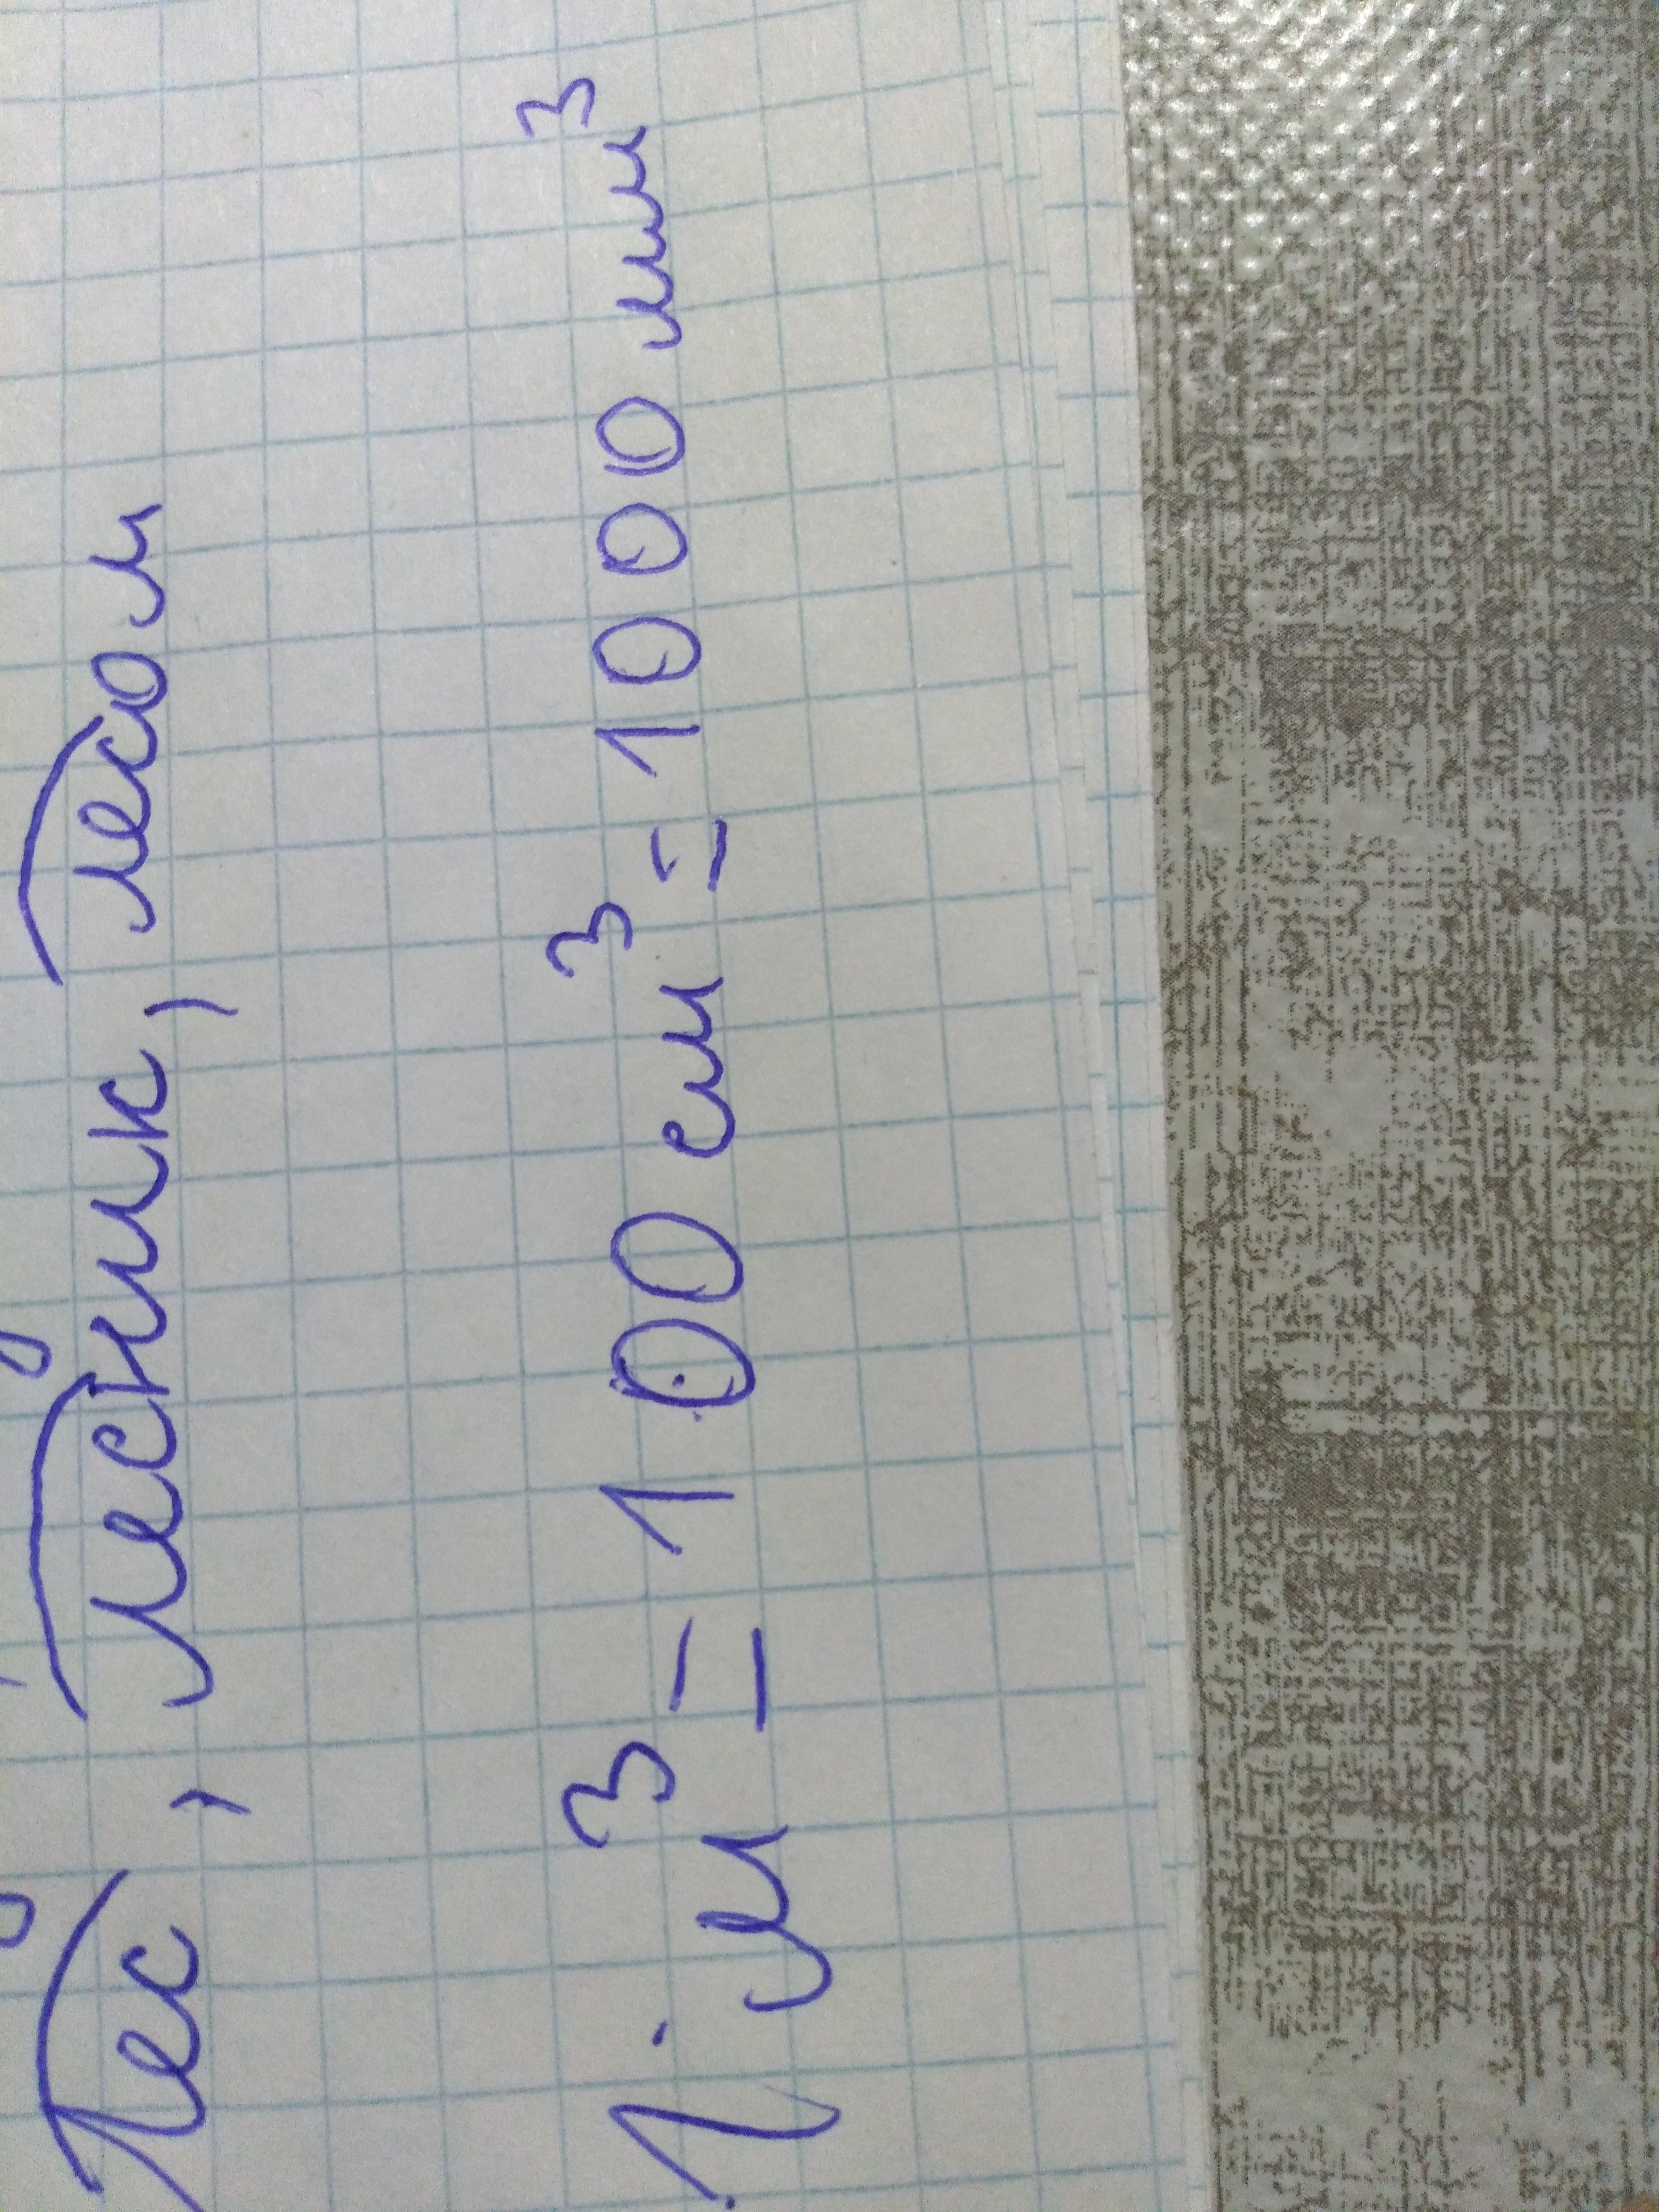 Лес, Лесник, лесом
1 м³ = 100 см³ = 1000 мм³